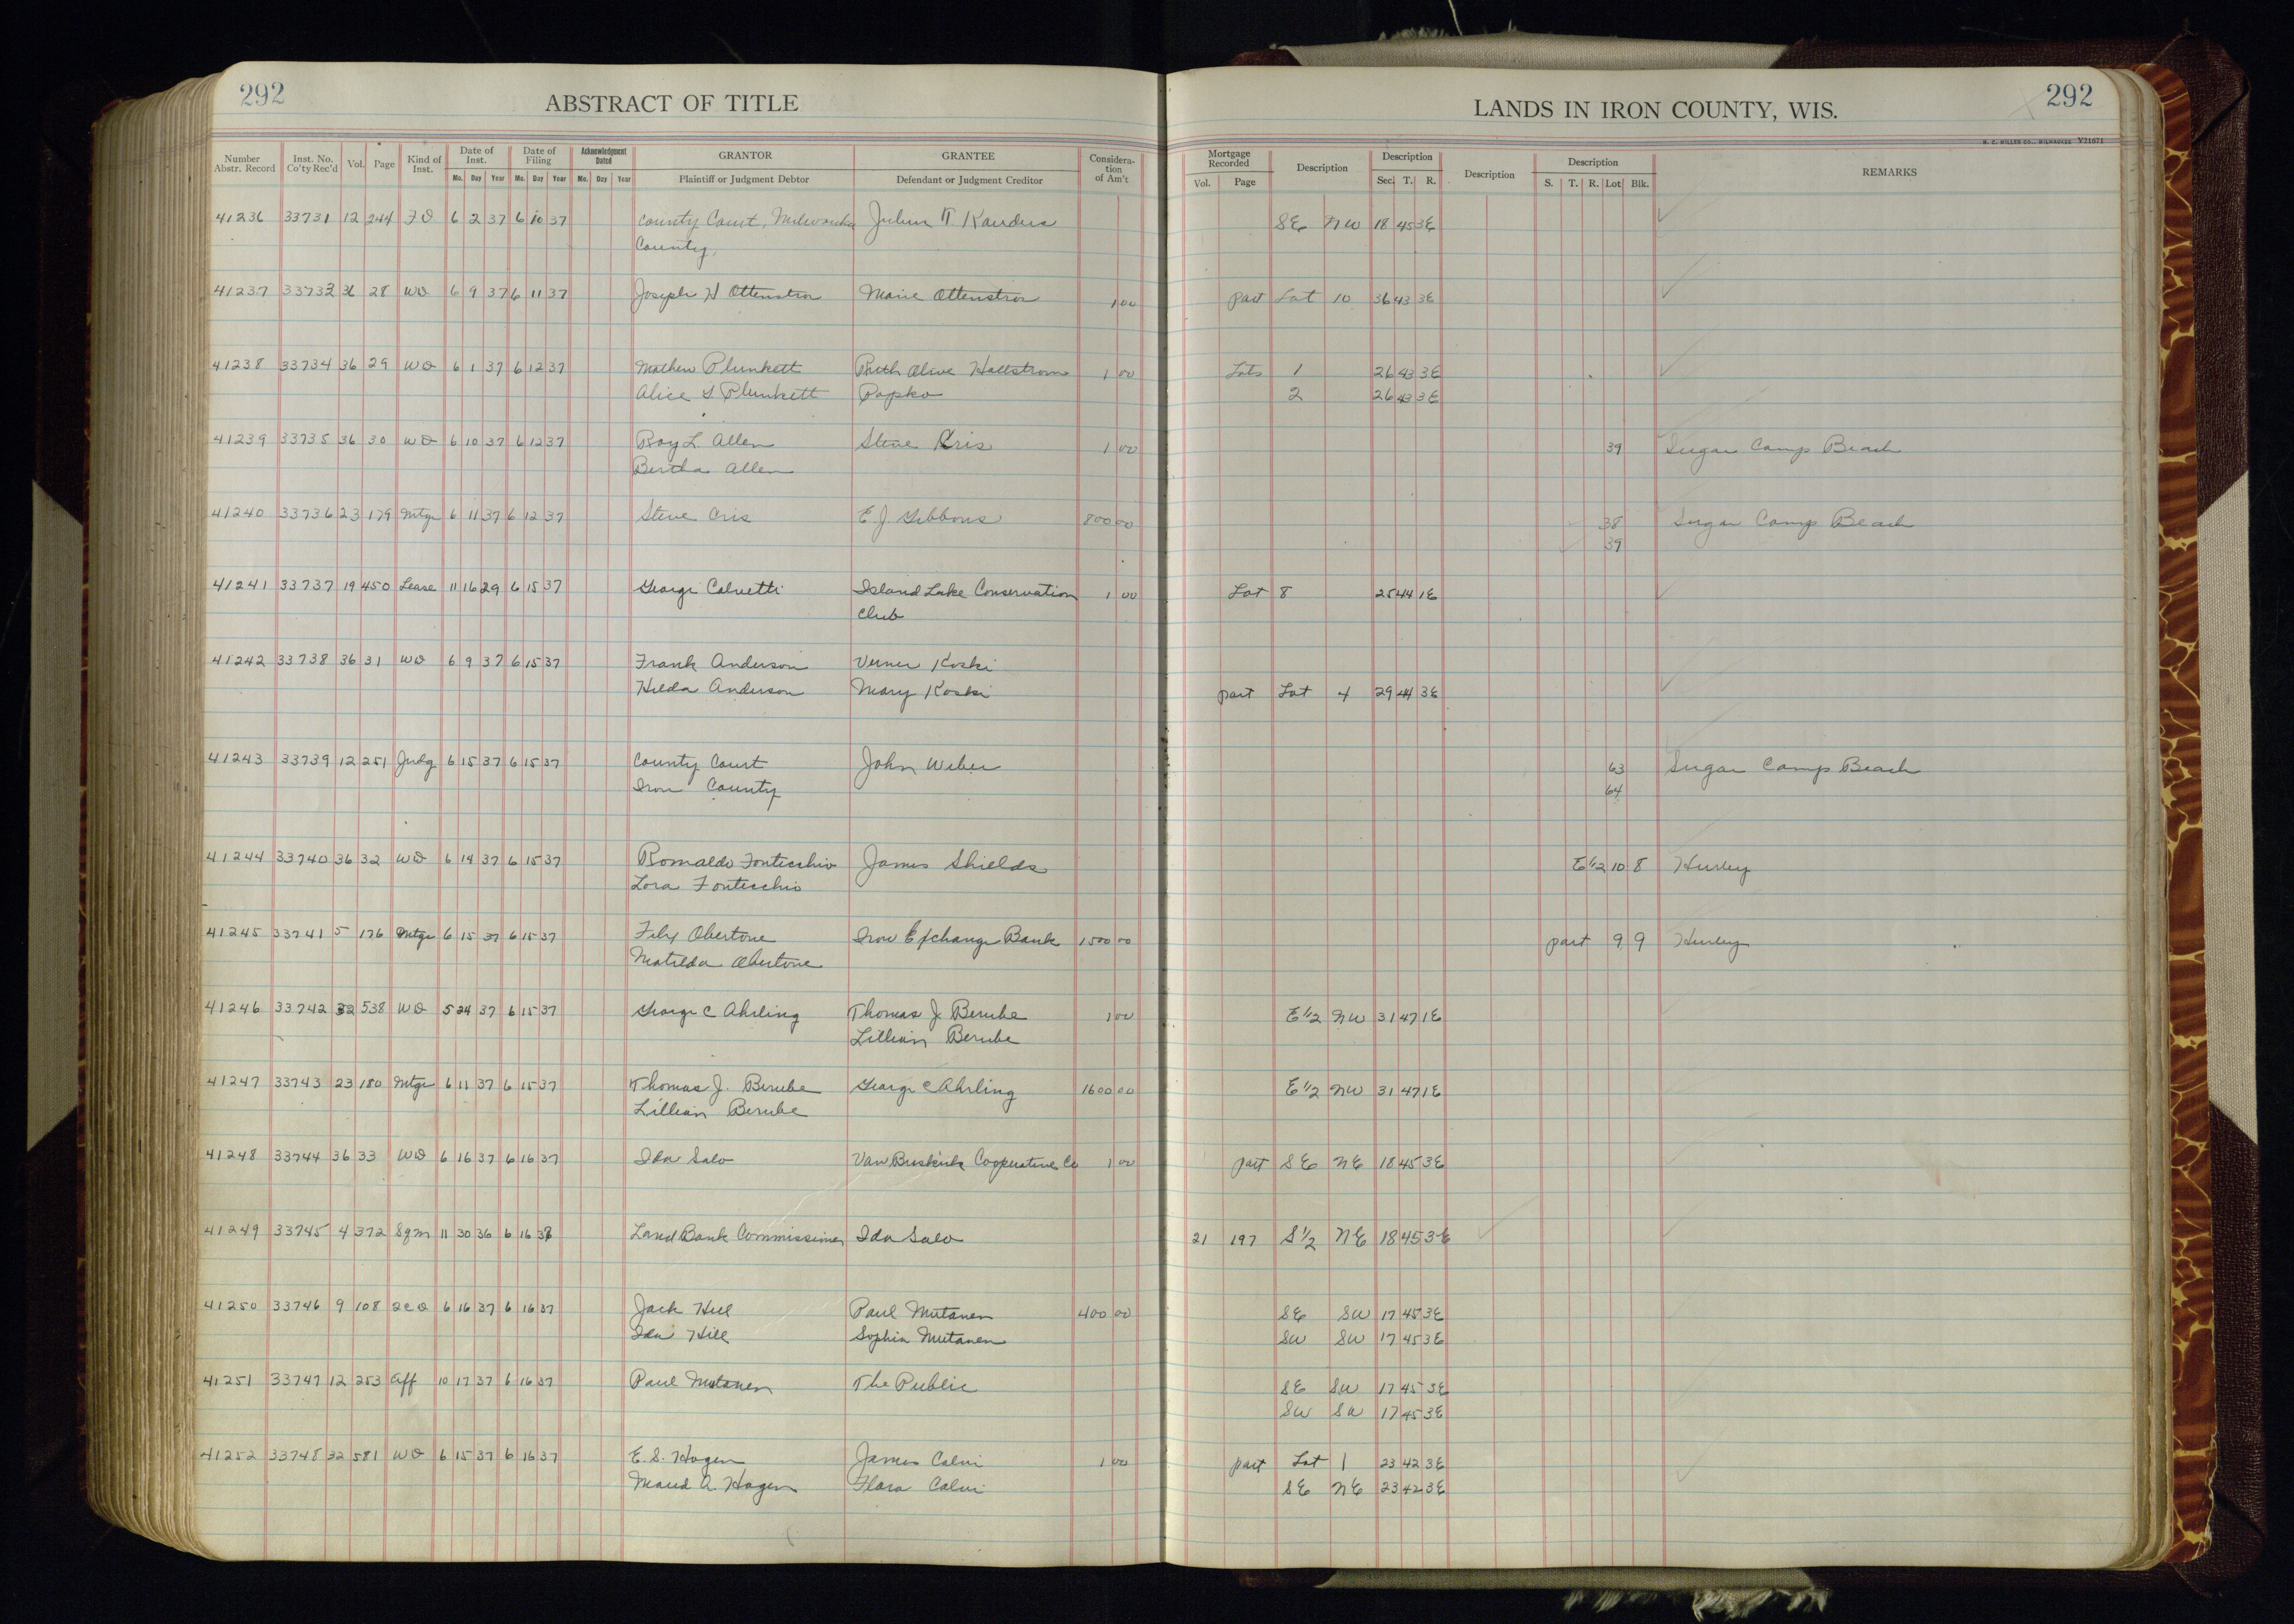 292
ABSTRACT OF TITLE
LANDS IN IRON COUNTY, WIS.
292
H. C. MILLER CO., MILWAUKEE V21671
Number Abstr. Record Inst. No. Co'ty Rec'd Vol. Page Kind of Inst. Date of Inst. Mo. Day Year Date of Filing Mo. Day Year Acknowledgment Dated Mo. Day Year GRANTOR Plaintiff or Judgment Debtor GRANTEE Defendant or Judgment Creditor Considera-tion of Am't Mortgage Recorded Vol. Page Description Description Sec. T. R. Description Description S. T. R. Lot Blk. REMARKS
41236 33731 12 244 FD 6 2 37 6 10 37 County Court, Milwaukee Julius SE NW 18 45 3E
County,
41237 33732 36 28 WD 6 9 37 6 11 37 Joseph H Ottenstror Marie Ottenstror 1 00 part Lot 10 36 43 3E
41238 33734 36 29 WD 6 1 37 6 12 37 Mathew Plunkett Ruth Olive Hallstrom 1 00 Lots 1 26 43 3E
Alice S Plunkett Popko 2 26 43 3E
41239 33735 36 30 WD 6 10 37 6 12 37 Roy L. Allen Steve Cris 1 00 39 Sugar Camp Beach
Bertha Allen
41240 33736 23 179 Mtge 6 11 37 6 12 37 Steve Cris E. J. Gibbons 800 00 38 Sugar Camp Beach
39
41241 33737 19 450 Lease 11 16 29 6 15 37 George Calvetti Island Lake Conservation 1 00 Lot 8 25 44 1E
Club
41242 33738 36 31 WD 6 9 37 6 15 37 Frank Anderson Verner Koski
Hilda Anderson Mary Koski part Lot 4 29 44 3E
41243 33739 12 251 Judg 6 15 37 6 15 37 County Court John Weber 63 Sugar Camp Beach
Iron County 64
41244 33740 36 32 WD 6 14 37 6 15 37 Romaldo Fontecchio James Shields E 1/2 10 8 Hurley
Lora Fontecchio
41245 33741 5 176 Mtge 6 15 37 6 15 37 Felix Obertone Iron Exchange Bank 1500 00 part 9 9 Hurley
Matilda Obertone
41246 33742 32 538 WD 5 24 37 6 15 37 George C Ahrling Thomas J Berube 1 00 E 1/2 NW 31 47 1E
Lillian Berube
41247 33743 23 180 Mtge 6 11 37 6 15 37 Thomas J. Berube George C Ahrling 1600 00 E 1/2 NW 31 47 1E
Lillian Berube
41248 33744 36 33 WD 6 16 37 6 16 37 Ida Salo Van Buskirk Cooperative Co 1 00 part SE NE 18 45 3E
41249 33745 4 372 Sgm 11 30 36 6 16 37 Land Bank Commissioner Ida Salo 21 197 S 1/2 NE 18 45 3E
41250 33746 9 108 QCD 6 16 37 6 16 37 Jack Hill Paul Mutanen 400 00 SE SW 17 45 3E
Ida Hill Sophia Mutanen SW SW 17 45 3E
41251 33747 12 253 Aff 10 17 37 6 16 37 Paul Mutanen The Public SE SW 17 45 3E
SW SW 17 45 3E
41252 33748 32 581 WD 6 15 37 6 16 37 E. S. Hagen James Calvi 1 00 part Lot 1 23 42 3E
Maud A. Hagen Flora Calvi SE NE 23 42 3E